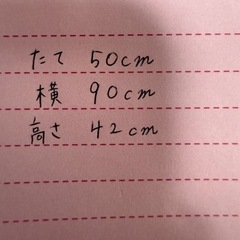 たて 50cm
横 90cm
高さ 42cm